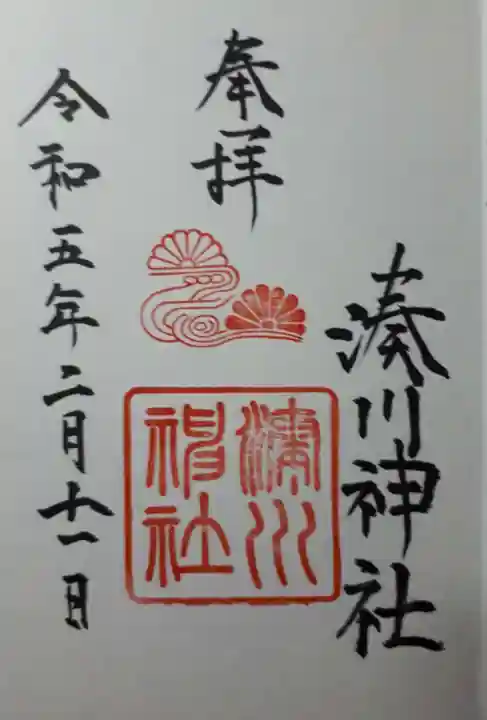 湊川神社
奉拝
湊川
神社
令和五年二月十一日